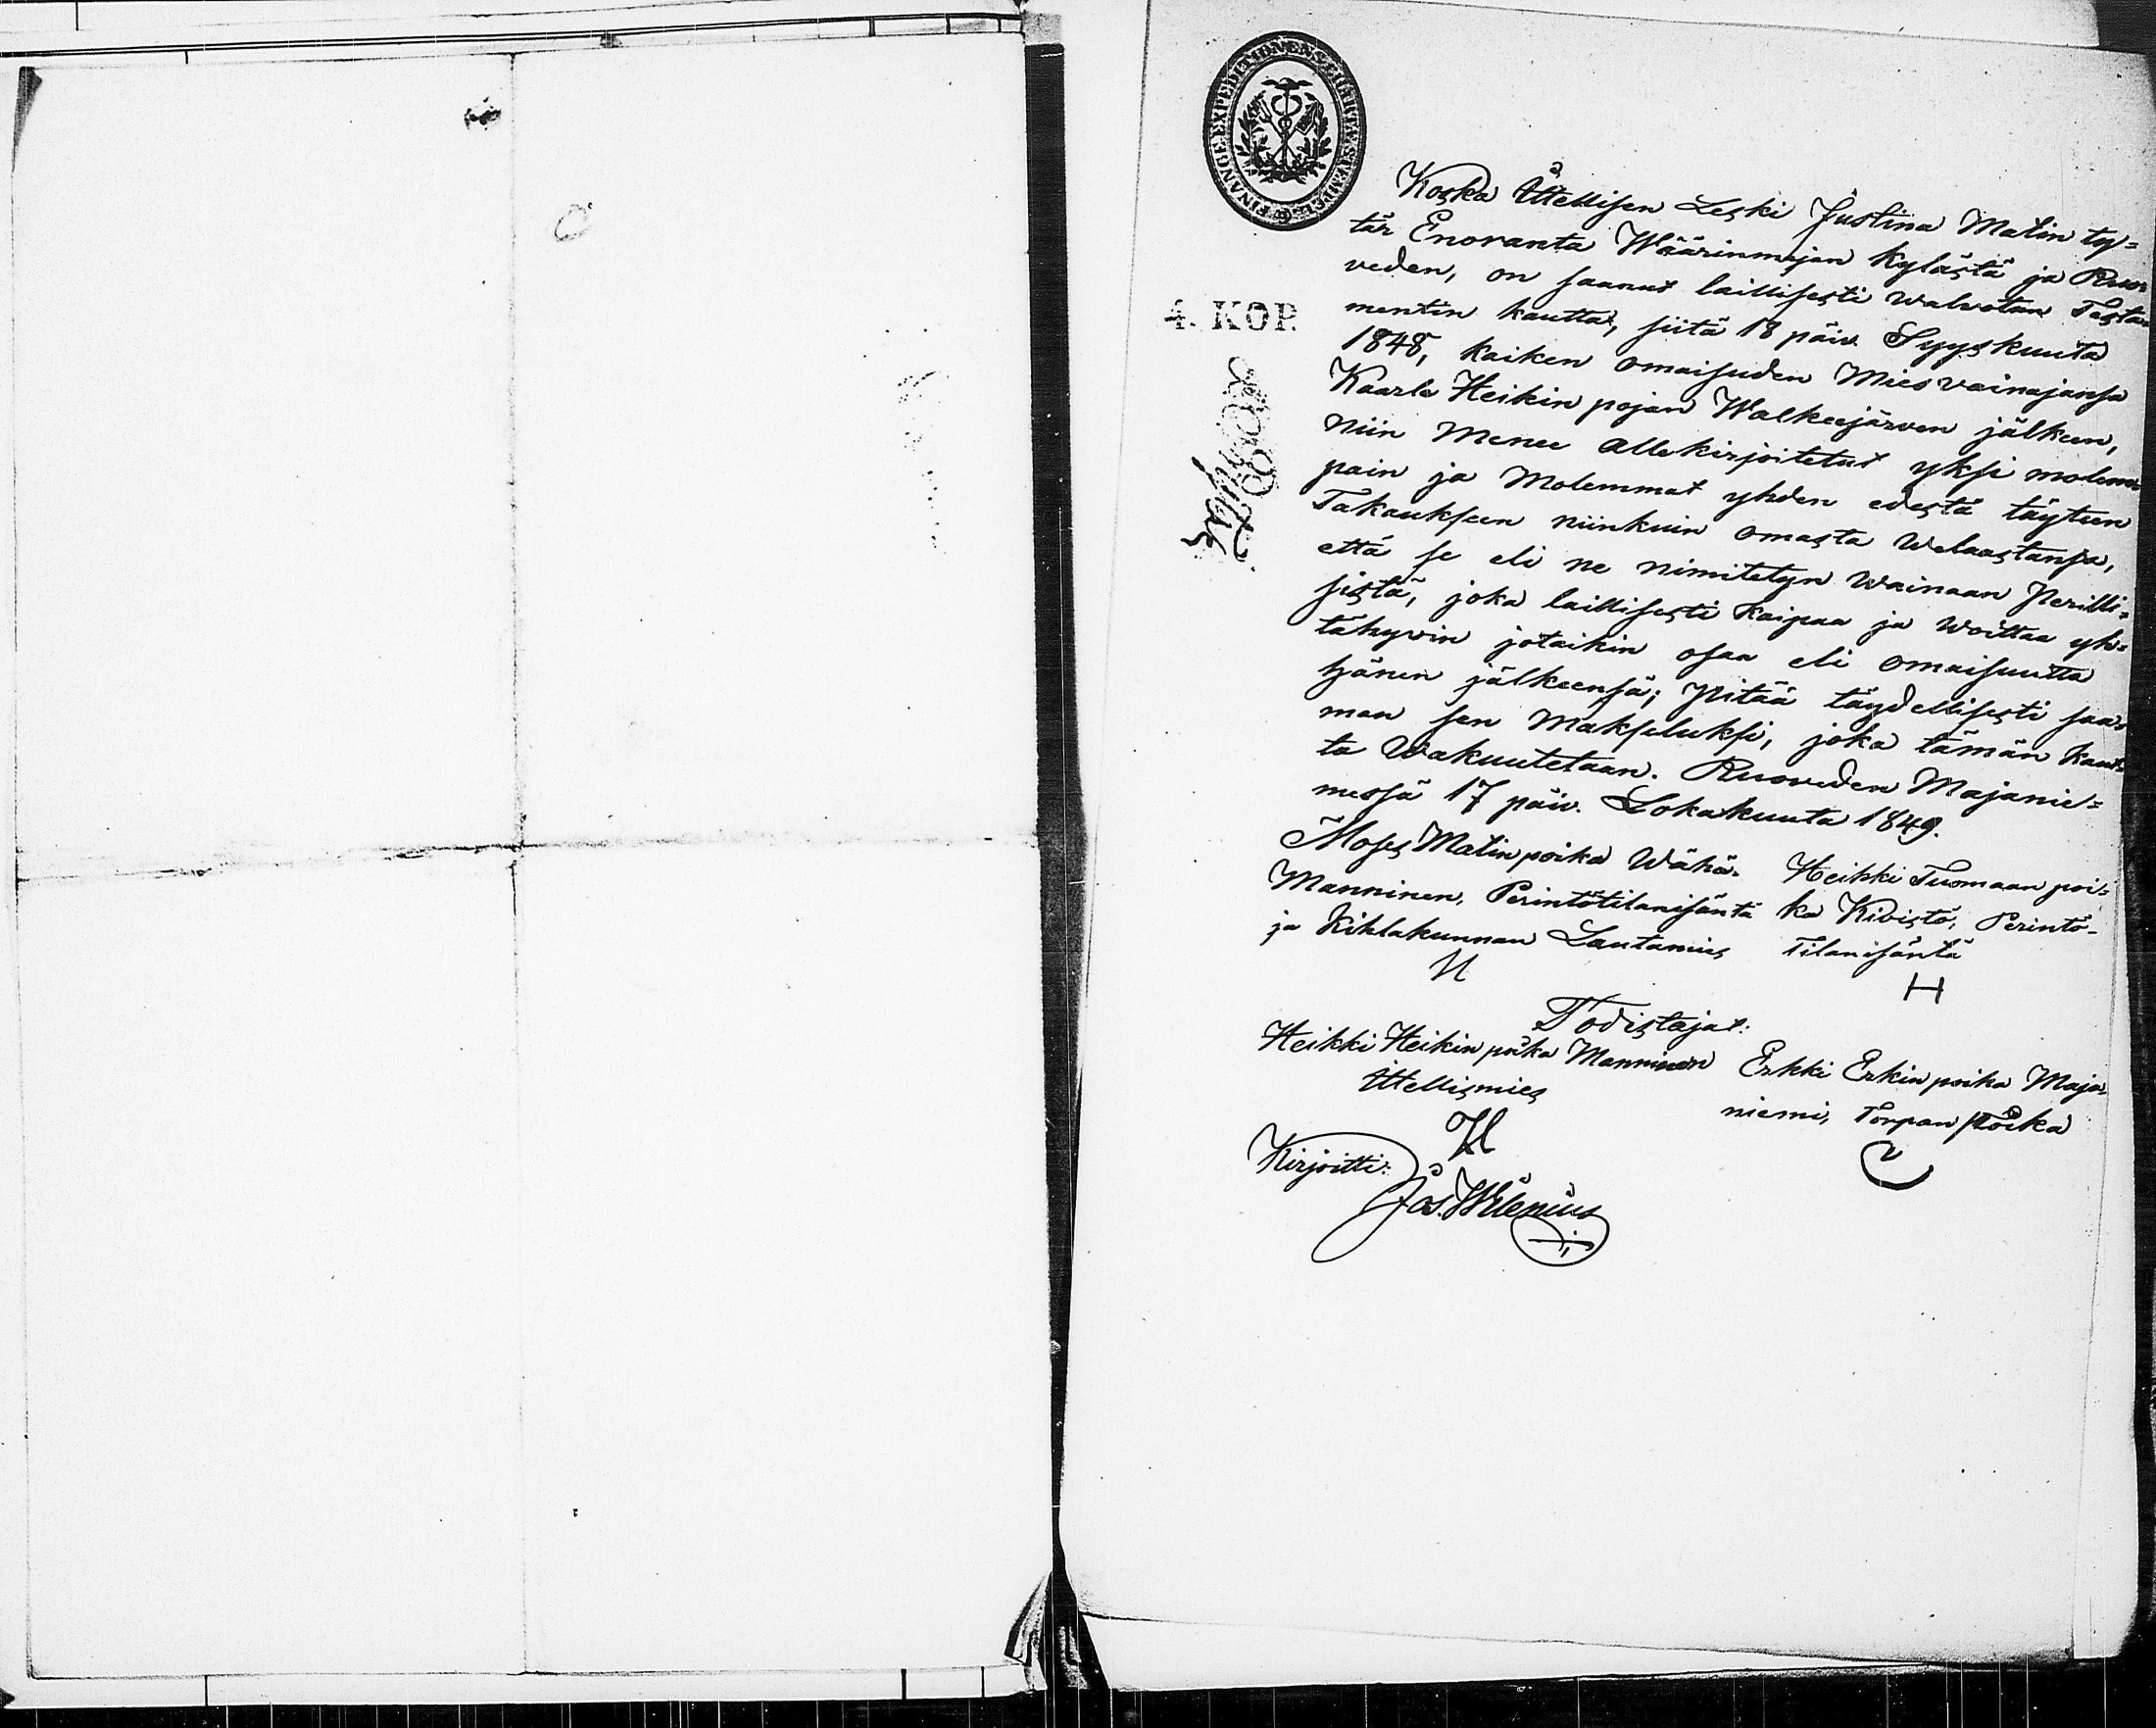 FINANCE EXPEDITIONENS CHARTÆ STÄMPEL
4. KOP.
Koska Ittellisen Leski Justina Matin ty-
tär Enoranta Wäärinmajan kylästä ja Ruo-
veden, on saanut laillisesti walvotun Testa-
mentin kautta, siitä 18 päiv. Syyskuuta
1848, kaiken omaisuden Miesvainajansa
Kaarle Heikin pojan Walkeejärven jälkeen,
niin menee allekirjoitetut yksi molem-
pain ja Molemmat yhden edestä täyteen
Takaukseen niinkuin omasta Welaastansa,
että se eli ne nimitetyn Wainaan Perilli-
sistä, joka laillisesti kaipaa ja woittaa yh-
tähyvin jotaikin osaa eli omaisuutta
hänen jälkeensä; Pitää täydellisesti saa-
man sen Makseluksi, joka tämän kaut-
ta Wakuutetaan. Ruoveden Majanie-
messä 17 päiv. Lokakuuta 1849.
Moses Matinpoika Wähä- Heikki Tuomaan poi-
Manninen, Perintötilanisäntä ka Kivistö, Perintö-
ja Kihlakunnan Lautamies Tilanisäntä
H
Todistajat:
Heikki Heikin poika Manninen Erkki Erkin poika Maja-
Ittellismies niemi, Torpan Poika
Kirjoitti:
Jos. Wilenius